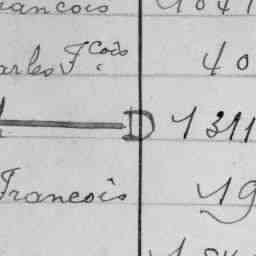 rancois 1841
arles Fcois 40
D 1311
Francois 19